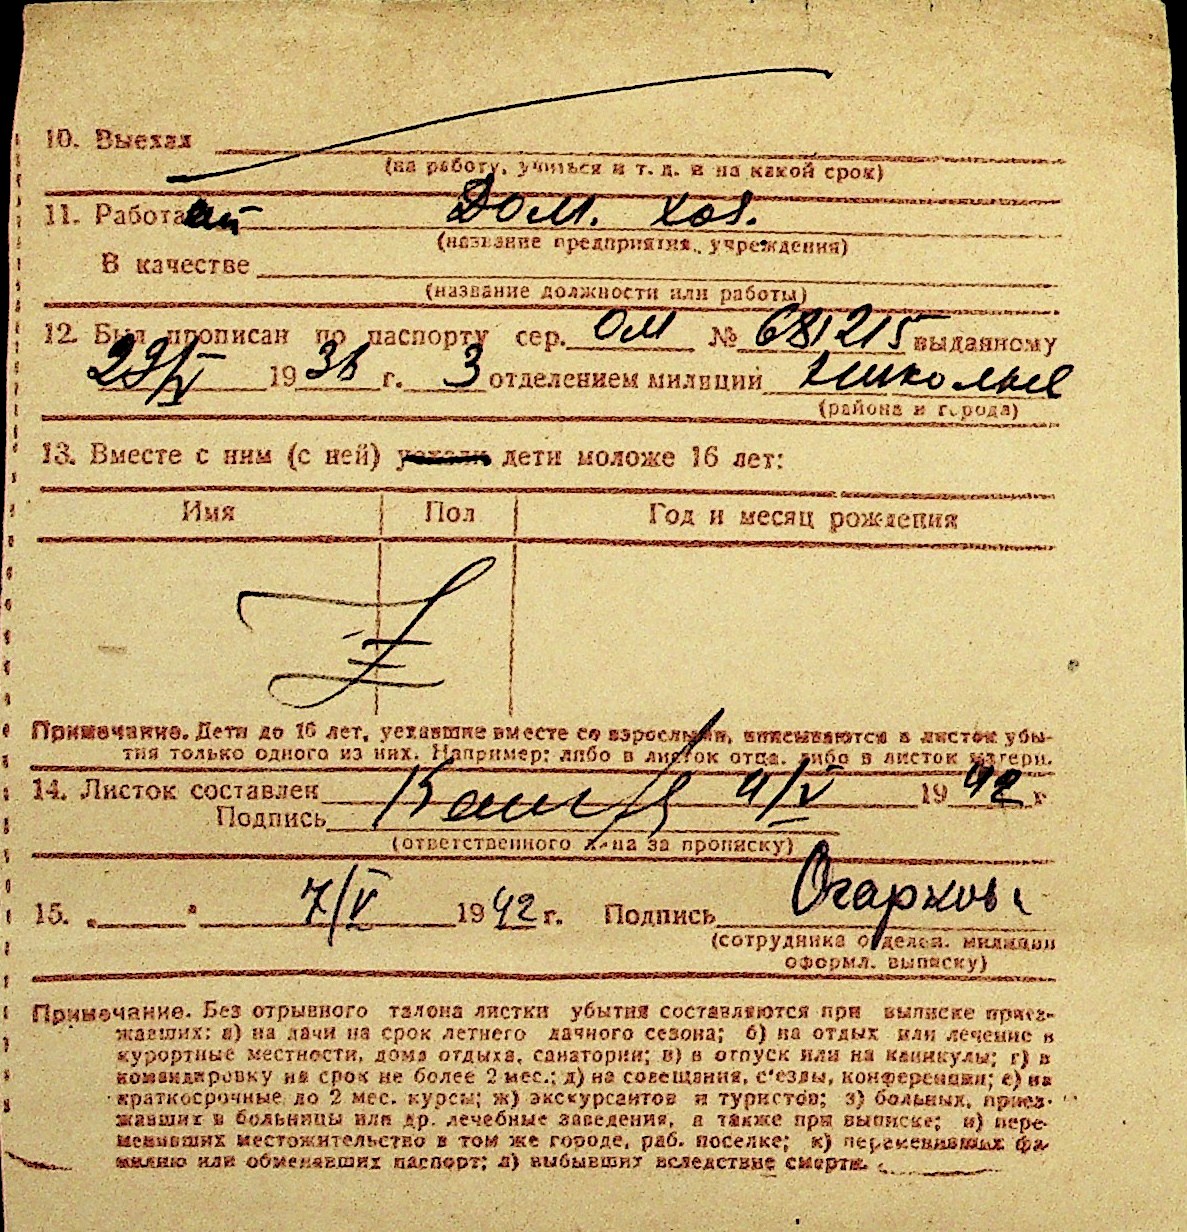 10. Выехал
(на работу, учиться и т. д. и на какой срок)
11. Работа Дом. хоз.
(название предприятия, учреждения)
В качестве
(название должности или работы)
12. Был прописан по паспорту сер. ОМ № 681215 выданному
29/V 1936 г. 3 отделением милиции
(района и города)
13. Вместе с ним (с ней) уехали дети моложе 16 лет:
Имя Пол Год и месяц рождения
Примечание. Дети до 16 лет, уехавшие вместе со взрослыми, вписываются в листок убы-
тия только одного из них. Например: либо в листок отца, либо в листок матери.
14. Листок составлен 4/V 1942 г
Подпись
(ответственного лица за прописку)
15. „ " 7/V 1942 г. Подпись Огаркова
(сотрудника отделен. милиции
оформл. выписку)
Примечание. Без отрывного талона листки убытия составляются при выписке приез-
жавших: а) на дачи на срок летнего дачного сезона; б) на отдых или лечение в
курортные местности, дома отдыха, санатории; в) в отпуск или на каникулы; г) в
командировку на срок не более 2 мес.; д) на совещания, с'езды, конференции; е) на
краткосрочные до 2 мес. курсы; ж) экскурсантов и туристов; з) больных, приез-
жавших в больницы или др. лечебные заведения, а также при выписке; и) пере-
менивших местожительство в том же городе, раб. поселке; к) переменивших фа-
милию или обменявших паспорт; л) выбывших вследствие смерти.